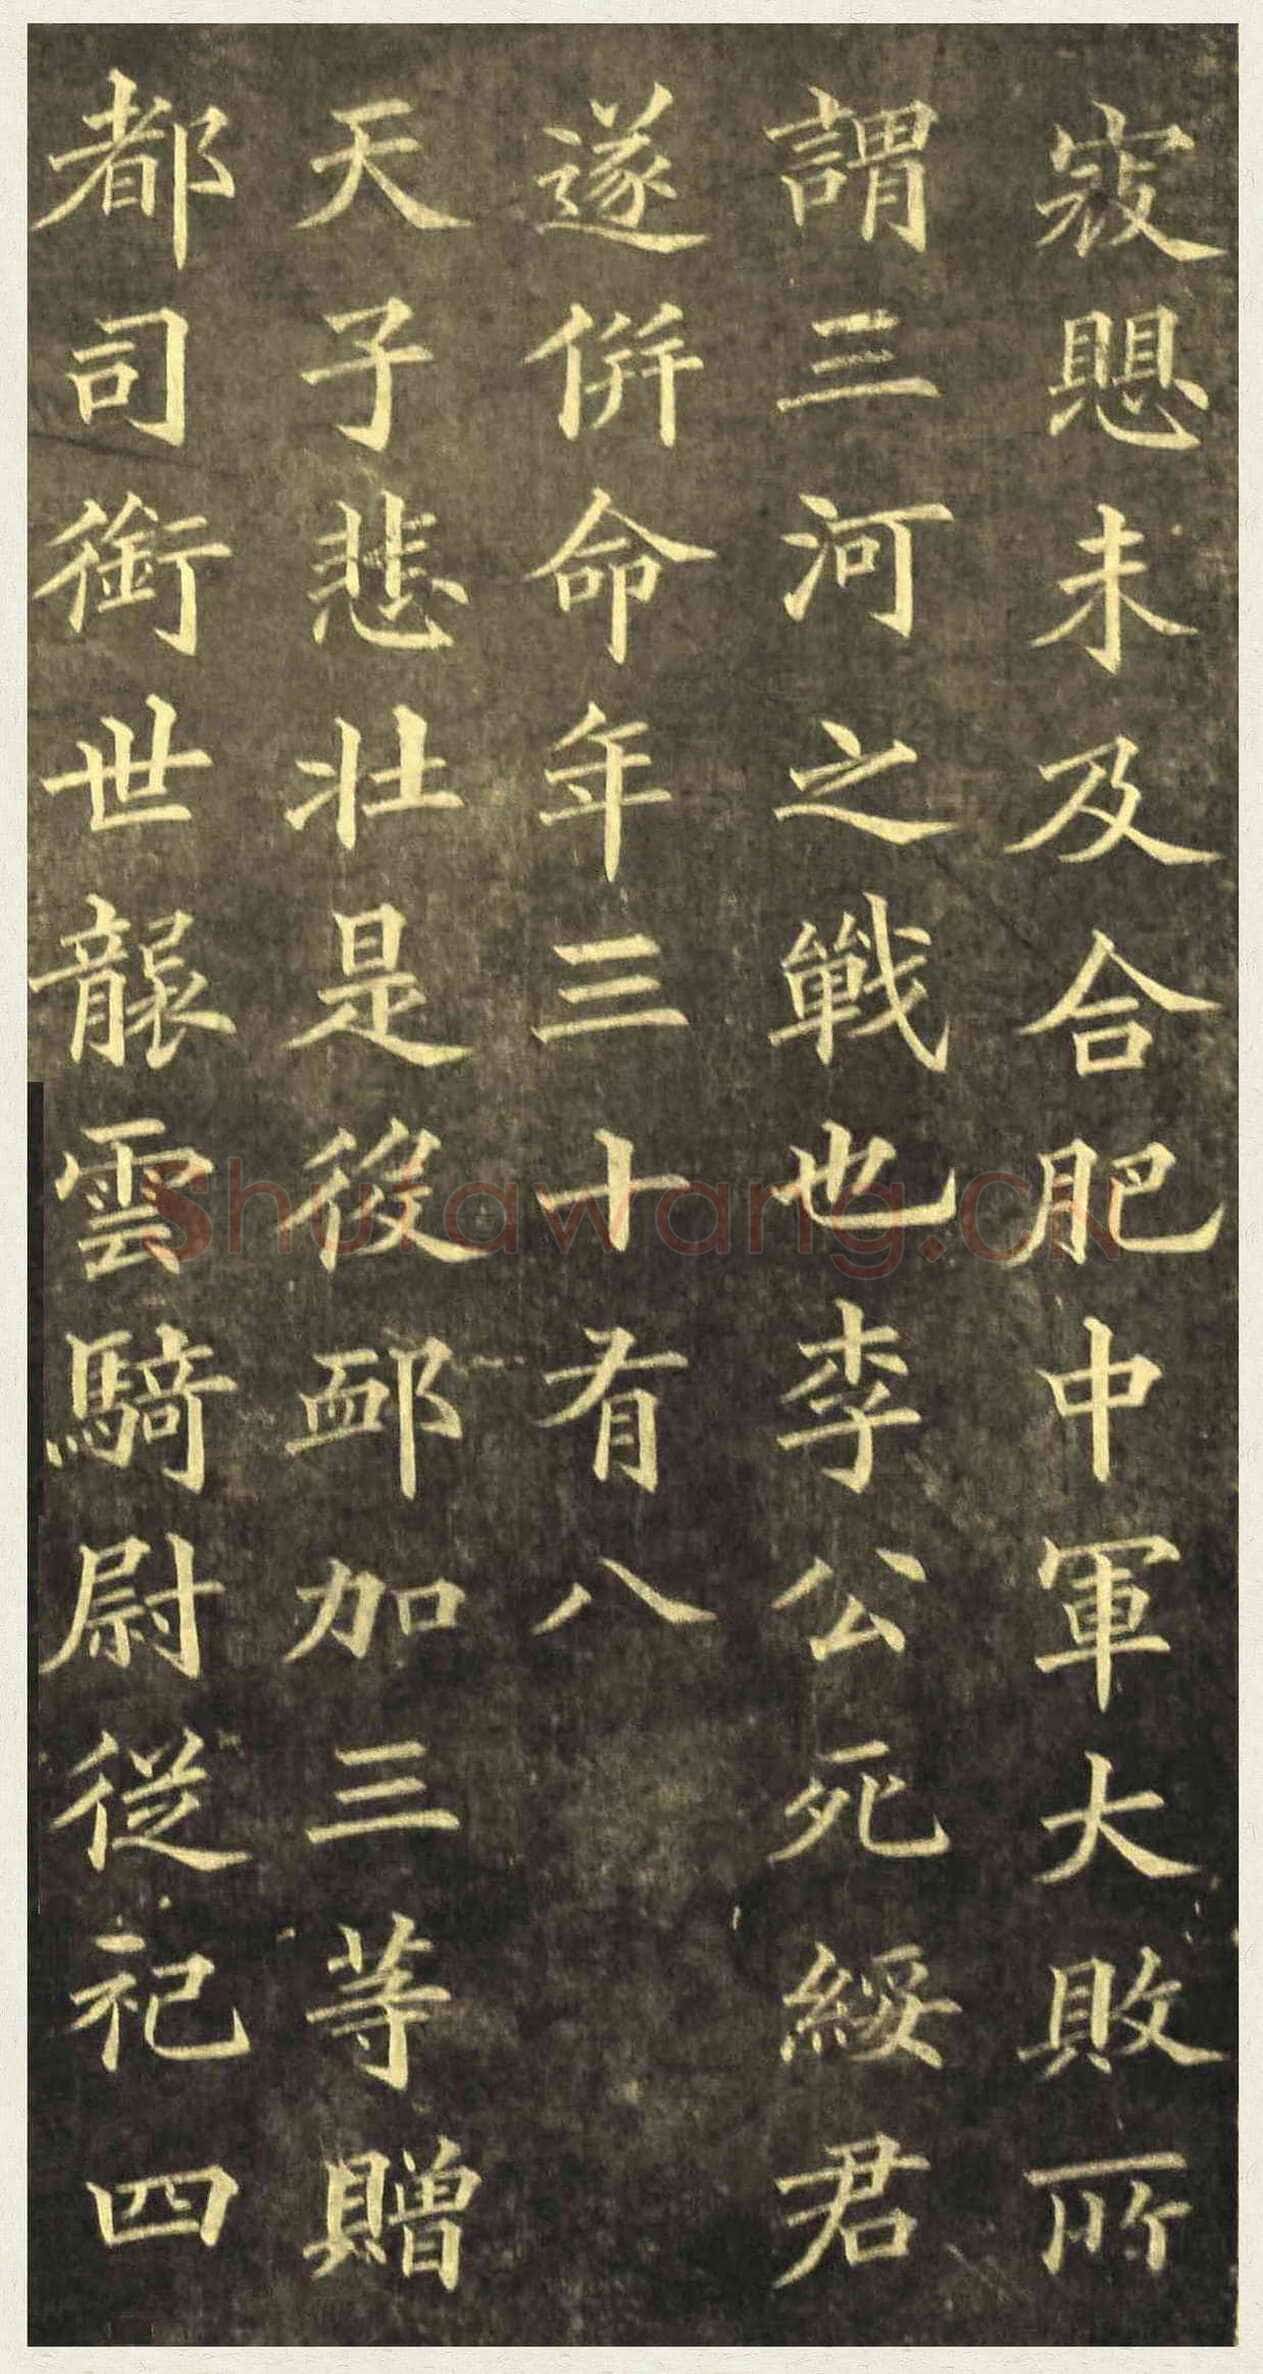 寇愳未及合肥中軍大敗所
謂三河之戰也李公死綏君
遂併命年三十有八
天子悲壯是後䘏加三等贈
都司銜世襲雲騎尉從祀四
shufawang.cn